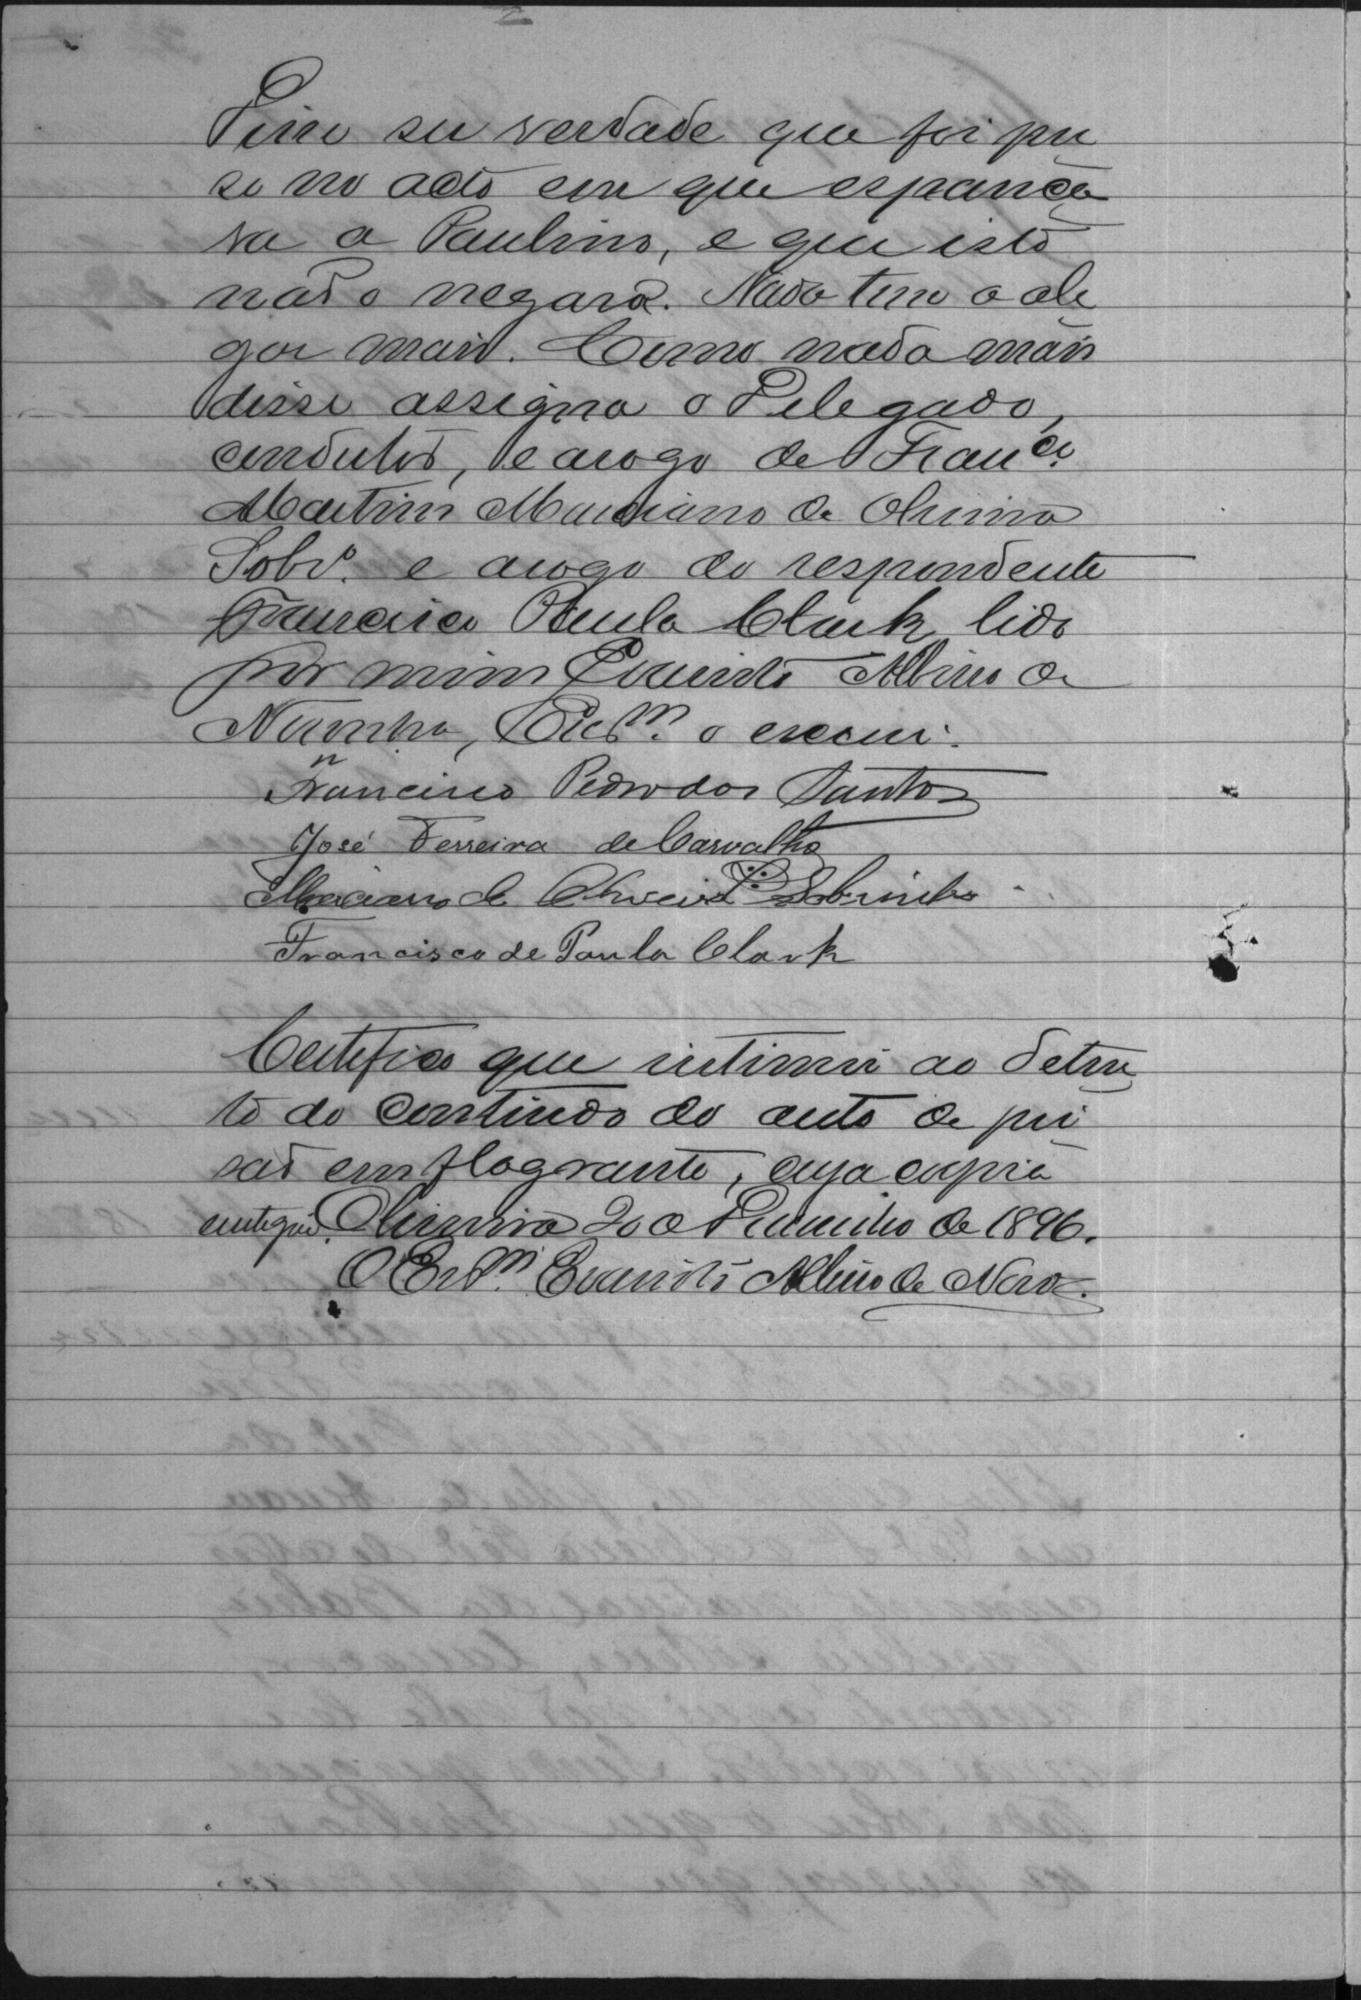 Disse ser verdade que foi pre
so no acto em que espanca
va a Paulino, e que isto
não o negará. Nada tem a ale
gar mais. Como nada mais
disse assigna o Delegado,
conductor, e arogo de Franco.
Martins Marciano de Oliveira
Sobro. e arogo do respondente
Francisco Paula Clark, lido
por mim Evaristo Albino de
o escrevi.
Francisco Pedro dos Santos
José Ferreira de Carvalho
Marciano de Oliveira Sobrinho
Francisco de Paula Clark
Certifico que intimei ao detem
to do contiudo do auto de pri
são em flagrante, cuja copia
entreguei. Oliveira 20 de Fevereiro de 1896.
O Escrm. Evaristo Albino de